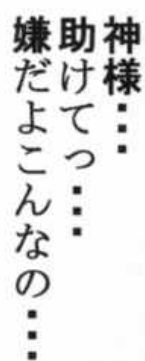 神様…
助けてっ…
嫌だよこんなの…